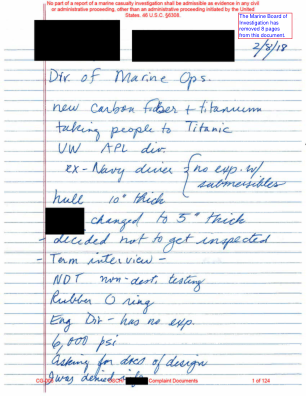 No part of a report of a marine casualty investigation shall be admissible as evidence in any civil
or administrative proceeding, other than an administrative proceeding initiated by the United
States. 46 U.S.C. §6308.
The Marine Board of
Investigation has
removed 8 pages
from this document.
2/8/18
Div. of Marine Ops.
new carbon fiber + titanium
taking people to Titanic
UW APL div.
ex-Navy diver } no exp. w/
submersibles
hull 10" thick
changed to 5" thick
- decided not to get inspected
- Term interview -
NDT non-dest. testing
Rubber O ring
Eng Dir - has no exp.
6,000 psi
asking for docs of design
I was denied
Complaint Documents
1 of 124